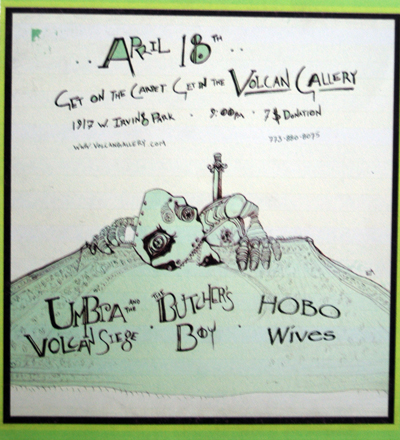 ..April 18th..
Get on the Carpet Get in the Volcan Gallery
1917 W. Irving Park · 8:00pm · 7$ Donation
www.volcangallery.com
Umbra and the Volcan Siege · The Butcher's Boy · HOBO Wives